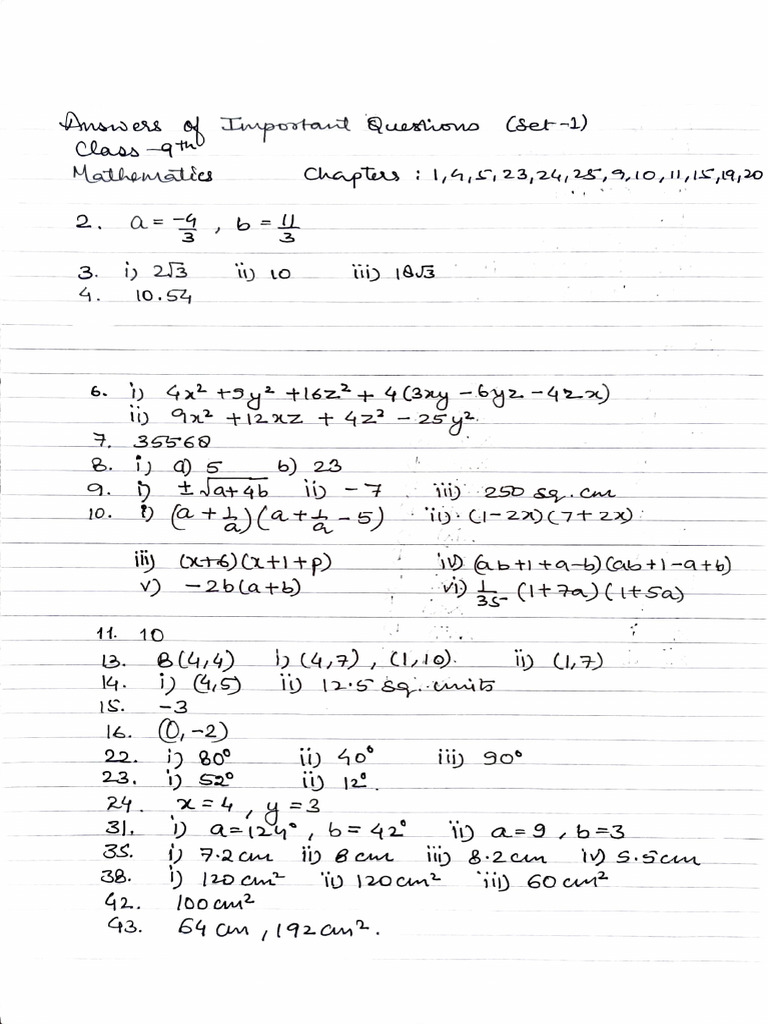 Answers of Important Questions (Set-1)
Class -9th
Mathematics Chapters : 1,4,5,23,24,25,9,10,11,15,19,20
2. a = -4/3 , b = 11/3
3. i) 2√3 ii) 10 iii) 18√3
4. 10.54
6. i) 4x² + 9y² + 16z² + 4(3xy - 6yz - 4zx)
ii) 9x² + 12xz + 4z² - 25y²
7. 35568
8. i) a) 5 b) 23
9. i) ±√a+4b ii) -7 iii) 250 sq. cm
10. i) (a + 1/a)(a + 1/a - 5) ii) (1-2x)(7+2x)
iii) (x+6)(x+1+p) iv) (ab+1+a-b)(ab+1-a+b)
v) -2b(a+b) vi) 1/35 (1+7a)(1+5a)
11. 10
13. B(4,4) i) (4,7) , (1,10). ii) (1,7)
14. i) (4,5) ii) 12.5 sq. units
15. -3
16. (0,-2)
22. i) 80° ii) 40° iii) 90°
23. i) 52° ii) 12°.
24. x = 4 , y = 3
31. i) a = 124° , b = 42° ii) a = 9 , b = 3
35. i) 7.2 cm ii) 8 cm iii) 8.2 cm iv) 5.5 cm
38. i) 120 cm² ii) 120 cm² iii) 60 cm²
42. 100 cm²
43. 64 cm , 192 cm².